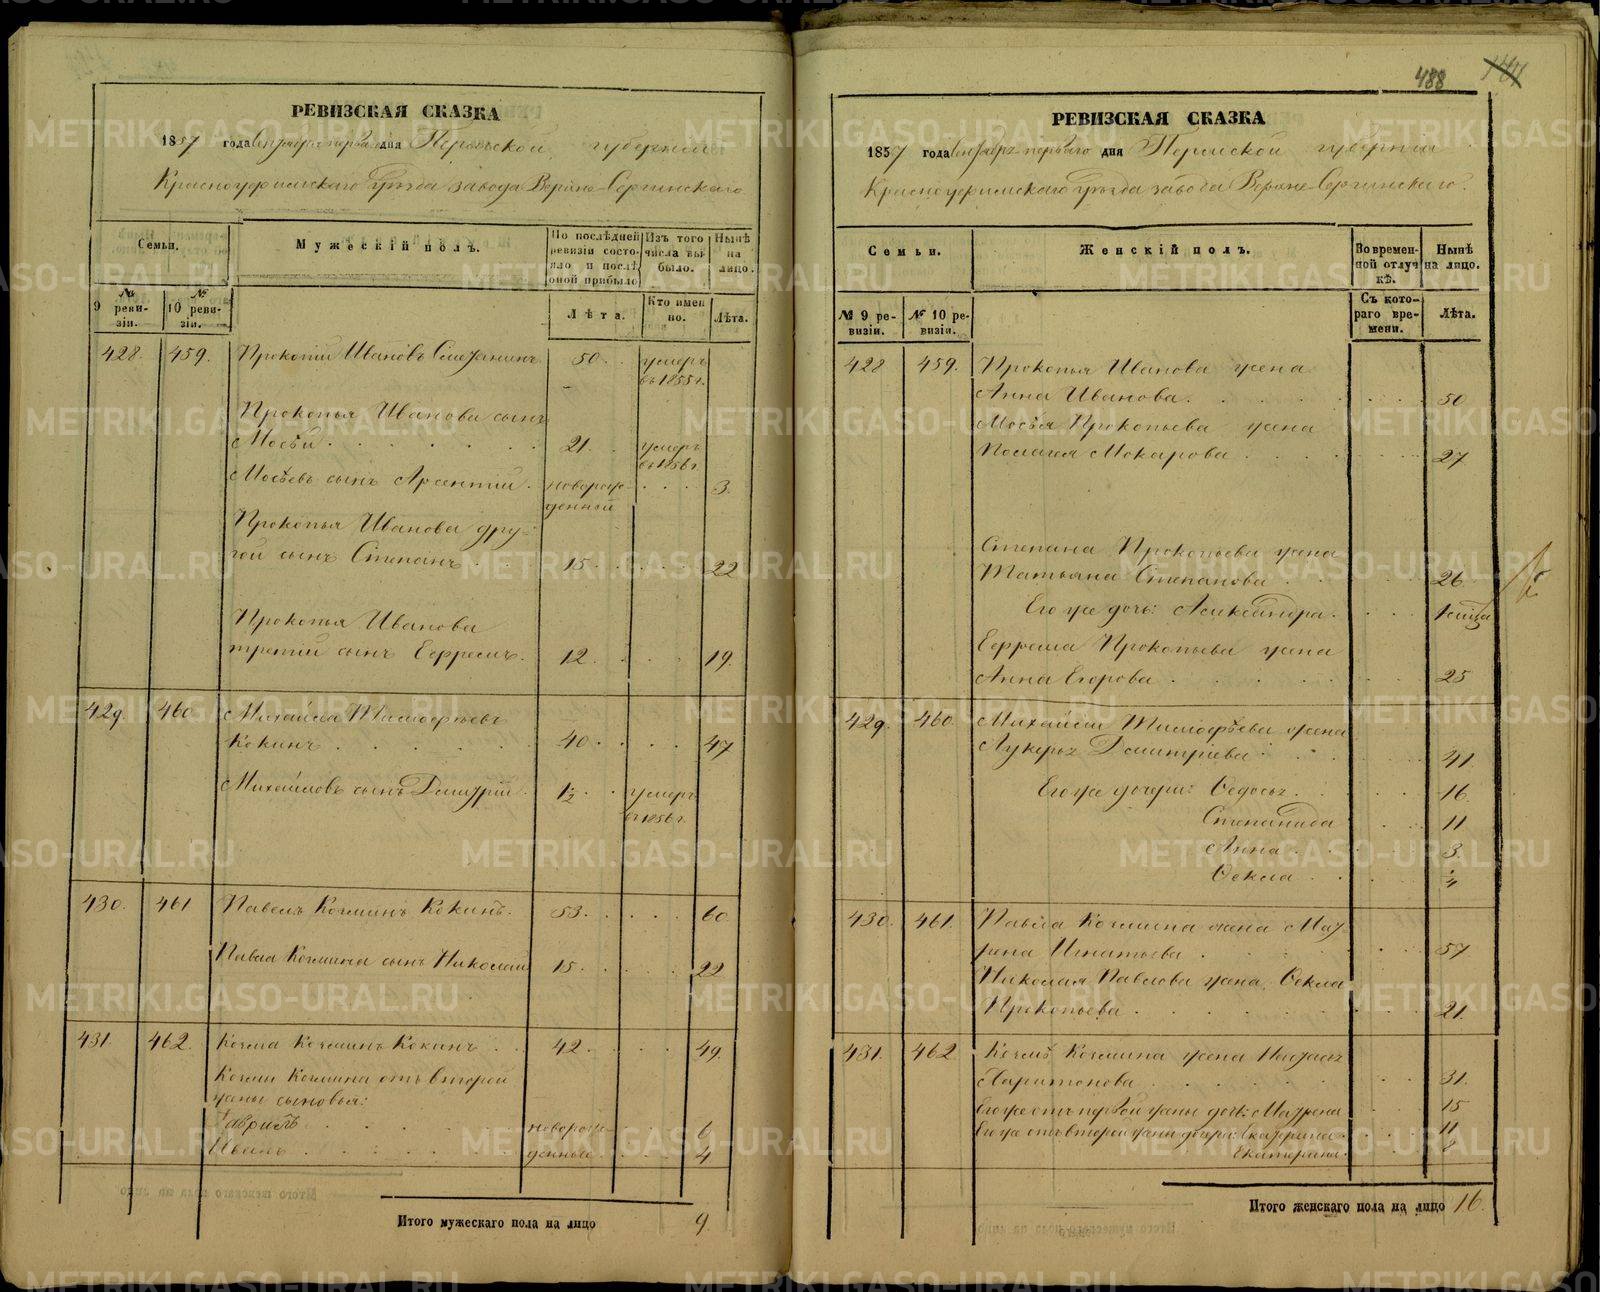 РЕВИЗСКАЯ СКАЗКА
1857 года сентября первого дня Пермской губернии
Красноуфимскаго уѣзда завода Верхне-Сергинскаго
Семьи.
Мужескій полъ.
По послѣдней ревизіи состояло и послѣ оной прибыло
Изъ того числа выбыло.
Нынѣ на лицо.
№ 9 ревизіи.
№ 10 ревизіи.
Лѣта.
Кто именно.
Лѣта.
428. 459. Прокопій Ивановъ 50 умеръ
въ 1855 г.
Прокопья Иванова сынъ
Мосѣй 21. умеръ
въ 1856 г.
Мосѣевъ сынъ Арсентій новорож- 3.
денный
Прокопья Иванова дру-
гой сынъ Степанъ 15. 22
Прокопья Иванова
третій сынъ Ефремъ 12. 19.
429. 460 Михайла Тимофѣевъ
Кокинъ 40. 47
Михайловъ сынъ Дмитрій 1/2 умеръ
въ 1856 г.
430. 461 Павелъ Козминъ Кокинъ. 53. 60
Павла Козмина сынъ Николай 15. 22
431. 462. Козма Козминъ Кокинъ 42. 49.
Козмы Козмина отъ второй
жены сыновья:
Гаврилъ новорож- 6
Иванъ денные 4
Итого мужескаго пола на лицо 9.
488
144
РЕВИЗСКАЯ СКАЗКА
1857 года сентября перваго дня Пермской губерніи
Красноуфимскаго уѣзда завода Верхне-Сергинскаго.
Семьи.
Женскій полъ.
Во временной отлучкѣ.
Нынѣ на лицо.
№ 9 ревизіи.
№ 10 ревизіи.
Съ котораго времени.
Лѣта.
428 459. Прокопья Иванова жена
Анна Иванова. 50
Мосѣя Прокопьева жена
Пелагея Макарова 27
Степана Прокопьева жена
Татьяна Степанова 26
Его же дочь: Александра.
Ефрема Прокопьева жена
Анна Егорова 25
429. 460. Михайлы Тимофѣева жена
Лукерья Дмитріева 41.
Его же дочери: Федосья 16
Степанида 11
Анна 3.
Фекла 1/4
430. 461. Павла Козмина жена Мат-
рена Игнатьева 57
Николая Павлова жена Фекла
Прокопьева 21.
431. 462 Козмы Козмина жена
Харитонова 31.
Его же отъ первой жены дочь: Матрена 15
Его же отъ второй жены дочери: Екатерина 11
Екатерина
Итого женскаго пола на лицо 16.
METRIKI.GASO-URAL.RU